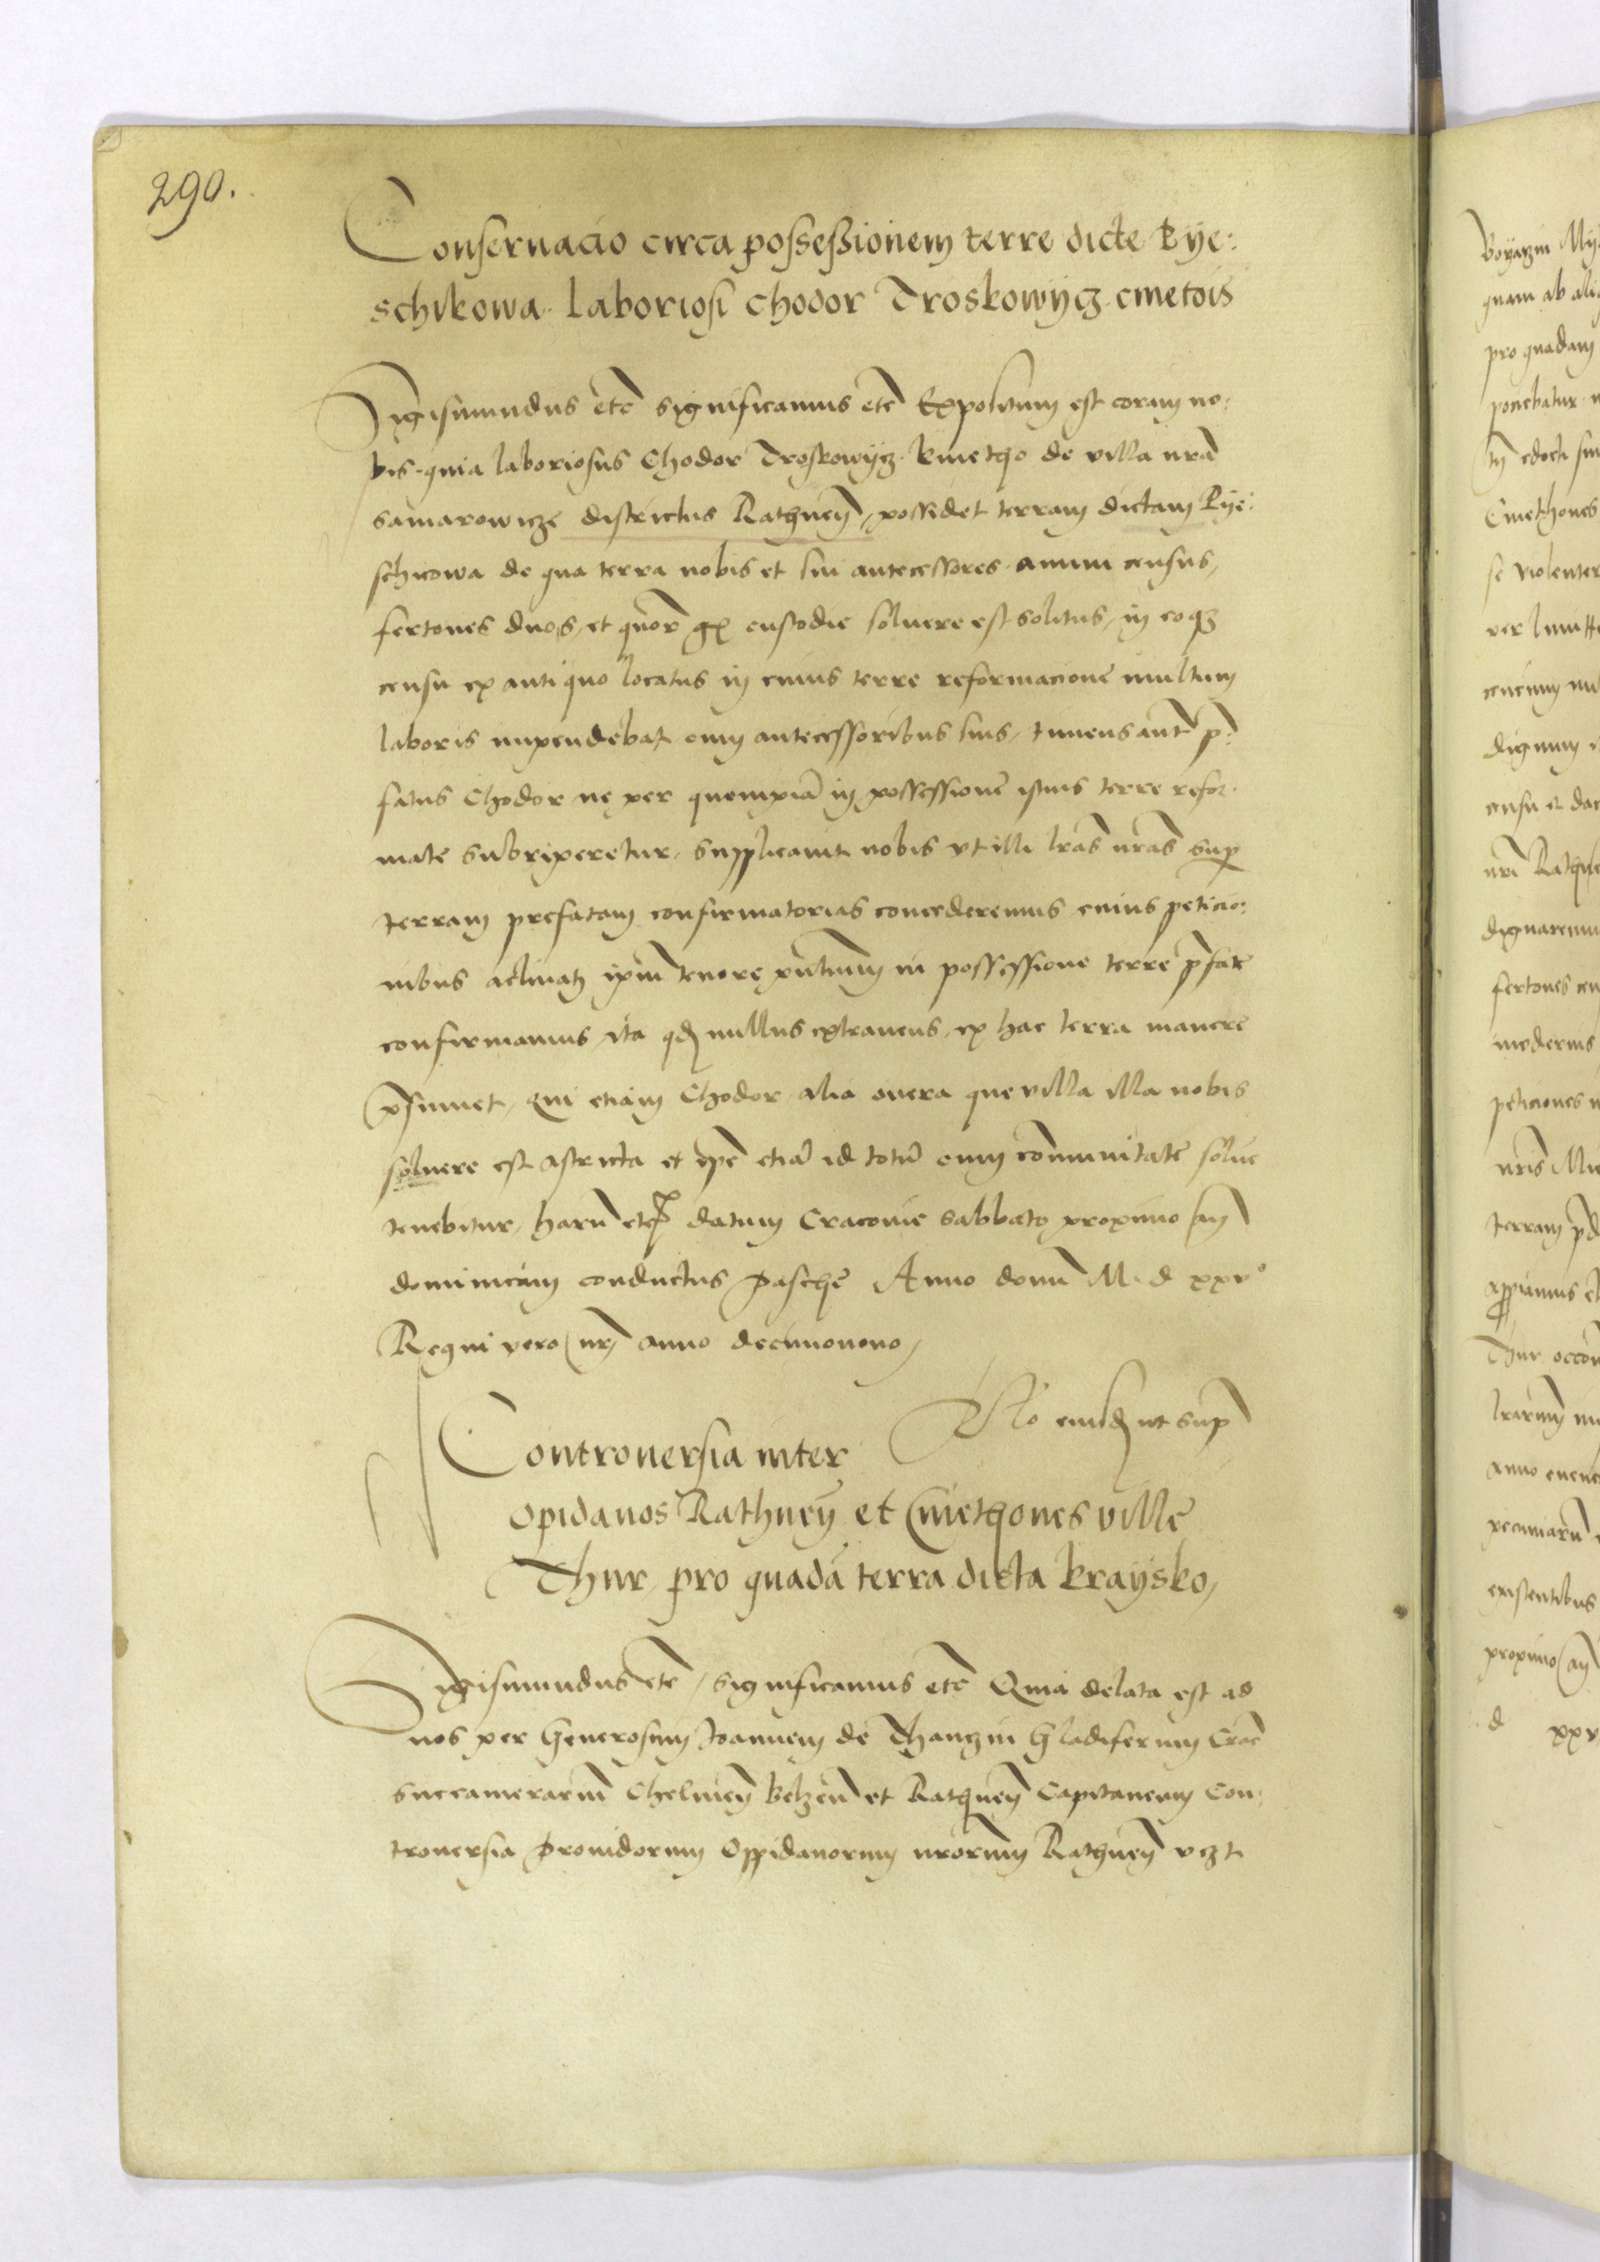 290.
Conseruacio circa possessionem terre dicte Kye:
schikowa laboriosi Chodor Troskowycz cmetois
Sigismundus etc significamus etc Expositum est coram no:
bis quia laboriosus Chodor Troskowycz kmetho de villa nra
samarowicze districtus Rathnen, possidet terram dictam Kye:
schicowa de qua terra nobis et sui antecessores annui census,
fertones duos, et quor gs custodie soluere est solitus, in eoqz
censu ex antiquo locatus in cuius terre reformacione multum
laboris impendebat cum antecessoribus suis, timens aut p:
fatus Chodor ne per quempia in possessione istius terre refor:
mate surriperetur, supplicauit nobis vt illi lras nras sup
terram prefatam confirmatorias concederemus cuius peticio:
nibus acclinati ipm tenore pntium in possessione terre pfate
confirmamus ita qd nullus extraneus, ex hac terra mauere
psumet, qui etiam Chodor alia onera que villa illa nobis
soluere est astricta et ipe etia id totu cum communitate solue
tenebitur, haru etc datum Cracouie sabbato proximo an
dominicam conductus Pasche Anno domi M d xxvº
Regni vero nri anno decimonono,
Rlo eiusd ut sup
Controuersia inter
opidanos Rathnen et Cmethones ville
Thur, pro quada terra dicta kraysko,
Sigismundus etc, significamus etc Quia delata est ad
nos per Generosum Joannem de Thanczin Gladiferum Crac
succamerarium Chelmen Belzen et Rathnen Capitaneum Con:
trouersia Prouidorum Oppidanorum nrorum Rathnen vczt